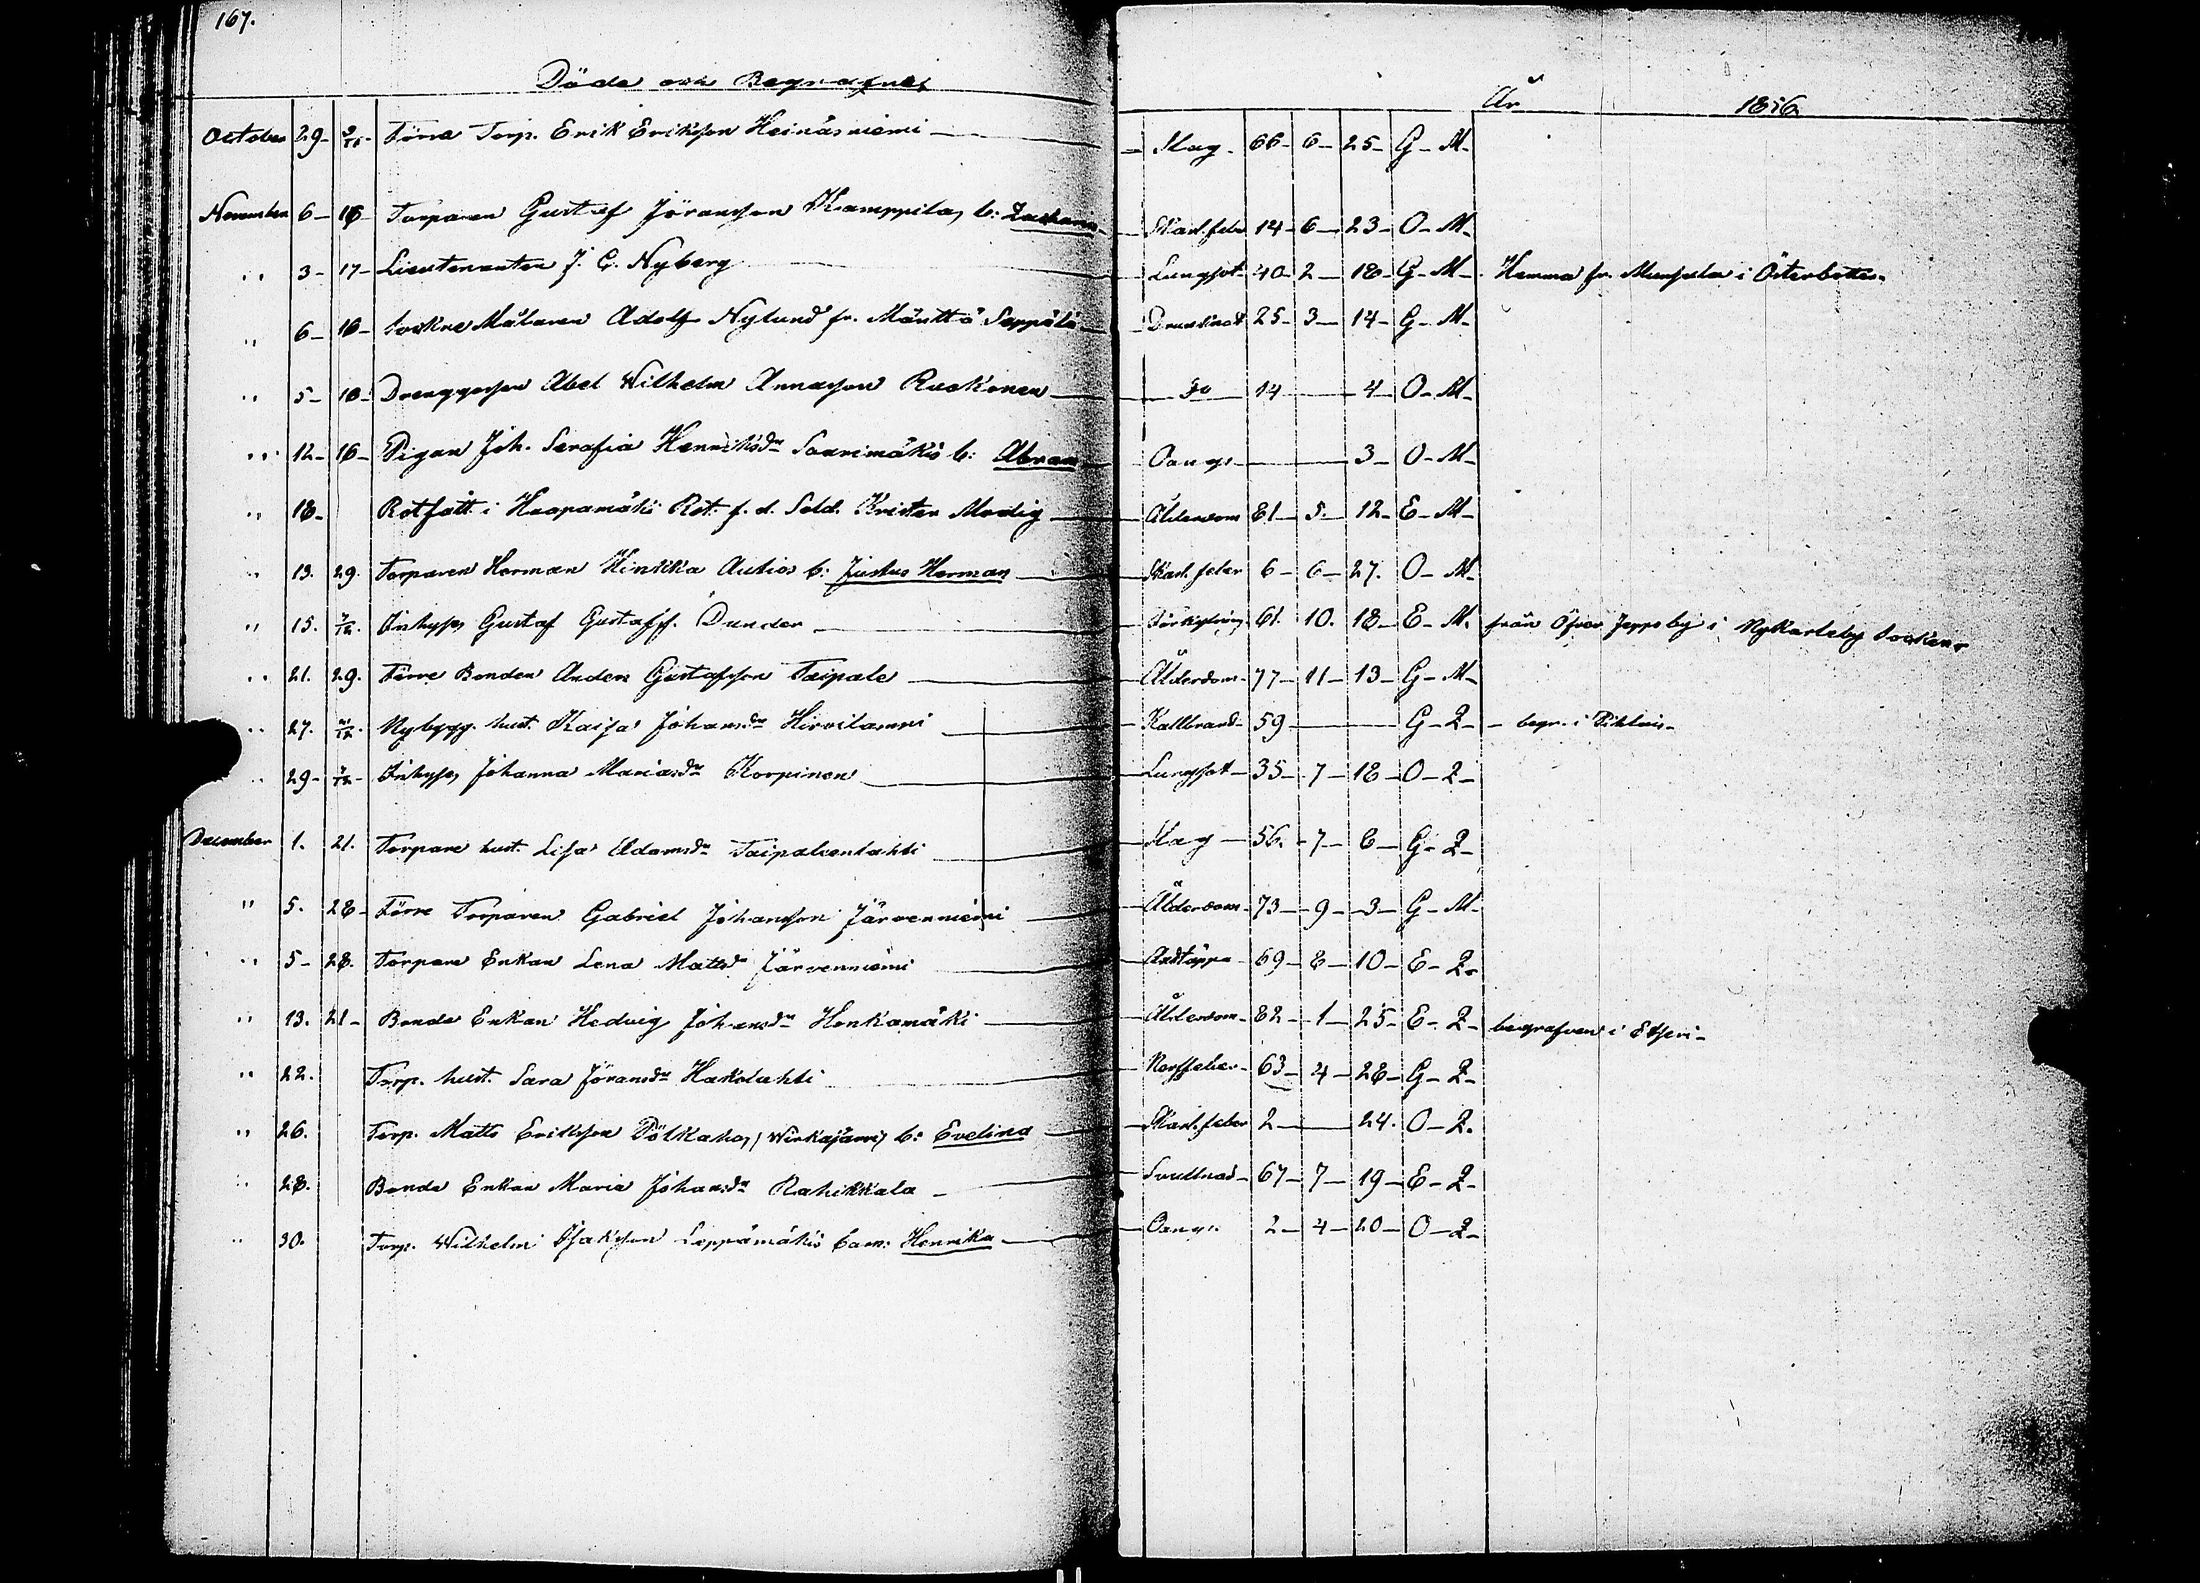 167.
Döde och Begrafne År 1856
October 29- 9/11- Förre Torp. Erik Eriksson Heinäsniemi - Slag - 66- 6- 25- G- M-
November 6- 16- Torparen Gustaf Jöransson Kamppila, b: - Skarl. feber 14- 6- 23- O- M-
" 3- 17- Lieutenanten J. G. Nyberg - Lungsot 40- 2- 18- G- M- Hemma fr. i Österbotten-
" 6- 16- Sockne Målaren Adolf Nylund fr. Mänttä Seppälä - Drunknat 25- 3- 14- G- M-
" 5- 16- Drenggossen Abel Wilhelm Annasson Ruokonen - Do 14 - 4- O- M-
" 12- 16- Pigan Joh. Serafia Henriksdr Saarimäkis b: Abram - Oang. - 3- O- M-
" 18- Rotfatt. i Haapamäki Rot. f. d. Sold. Krister Modig - Ålderdom 81- 5- 12- E- M-
" 13. 29. Torparen Herman Hinkka Autios b: Justus Herman - Skarl. feber 6- 6- 27. O- M-
" 15. 7/12. Inhyses Gustaf Gustafss. Dunder - Förkylning 61. 10. 18- E- M. från Öfver Jeppo by i Nykarleby Socken-
" 21. 29. Förre Bonden Anders Gustafsson Taipale - Ålderdom- 77- 11- 13- G- M-
" 27. 21/12. Nybygg. hust. Kaisa Johansdr Hirvilampi - Kallbrand- 59 - G- Q- - begr. i Pihlais-
" 29- 7/12- Inhyses Johanna Mariasdr Korpinen - Lungsot- 35- 7- 18- O- Q-
December 1. 21. Torpare hust. Lisa Adamsdr Taipaleenlahti - Slag - 56.- 7- 6- G- Q-
" 5. 28- Förre Torparen Gabriel Johansson Järvenniemi - Ålderdom- 73- 9- 3- G- M-
" 5- 28. Torpare Enkan Lena Mattsdr Järvenniemi - Andtäppa- 69- 8- 10- E- Q-
" 13. 21- Bonde Enkan Hedvig Johansdr Honkamäki - Ålderdom- 82- 1- 25- E- Q- begrafven i Etseri-
" 22. Torp. hust. Sara Jöransdr Hakolahti - Nervfeber- 63- 4- 28- G- Q-
" 26. Torp. Matts Eriksson Pölkaho, (Wirkajärvi) b: Evelina - Skarl. feber 2 - 24. O- Q.
" 28. Bonde Enkan Maria Johansdr Rahikkala - Svullnad- 67- 7- 19- E- Q-
" 30. Torp. Wilhelm Isaksson Leppämäkis barn: Henrika - Oang. 2- 4- 20- O- Q-